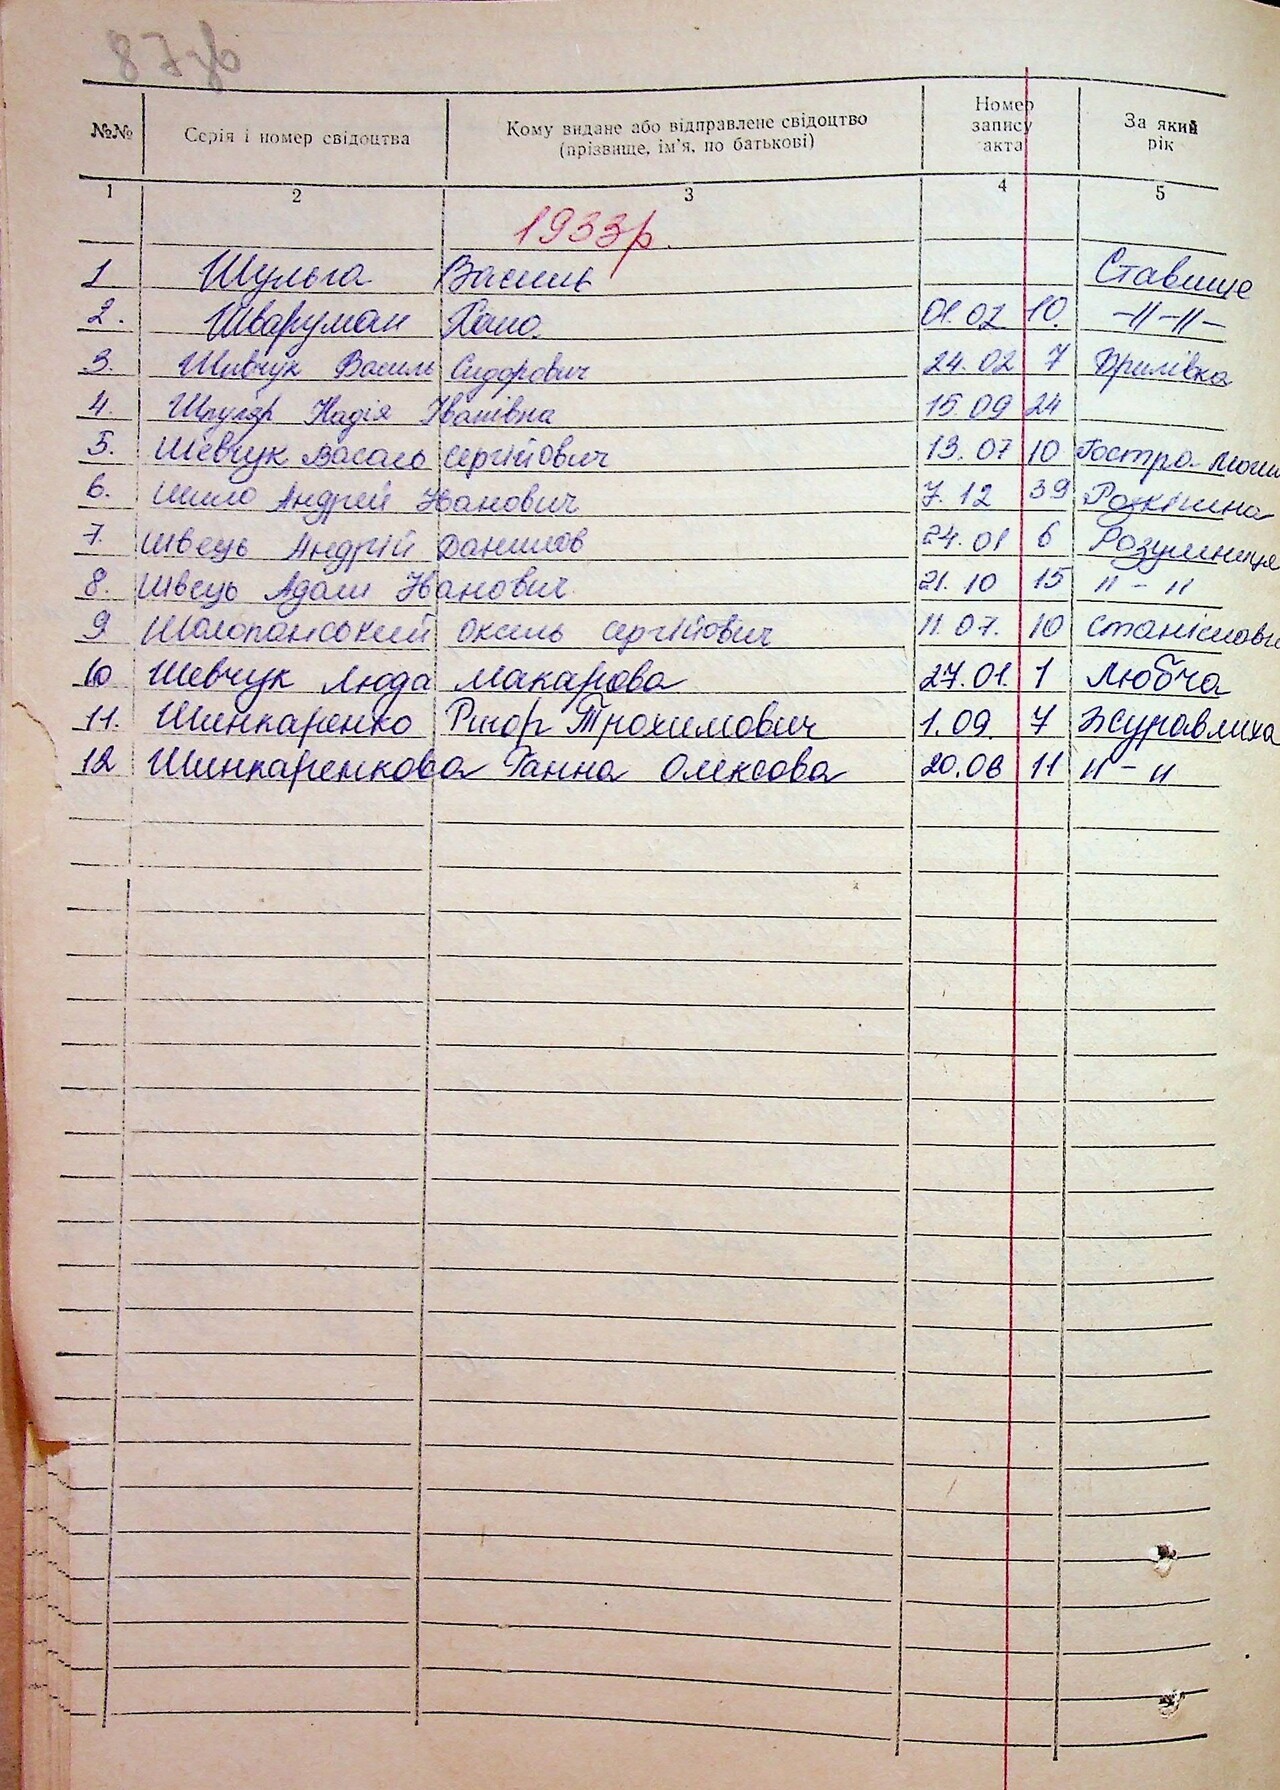 87зв
№№ Серія і номер свідоцтва Кому видане або відправлене свідоцтво (прізвище, ім'я, по батькові) Номер запису акта За який рік
1 2 3 4 5
1933р.
1 Шульга Василь Ставище
2. Шваруман Хано. 01.02 10. -"-"-
3. Шевчук Василь Сидорович 24.02 7
4. Надія Іванівна 15.09 24
5. Шевчук Васаль Сергійович 13.07 10 Гостра
6. Шило Андрей Іванович 7.12 39 Розкішна
7. Швець Андрій Данилов 24.01 6 Розумниця
8. Швець Адам Іванович 21.10 15 "-"
9 Шолопанський сергійович 11.07. 10
10 Шевчук Люда Макарова 27.01. 1 Любча
11. Шинкаренко Ригор Трохимович 1.09 7 Журавлиха
12 Шинкаренкова Ганна Олексова 20.06 11 "-"